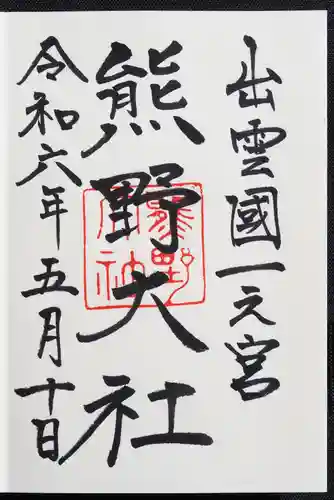 出雲國一之宮
熊野大社
令和六年五月十日